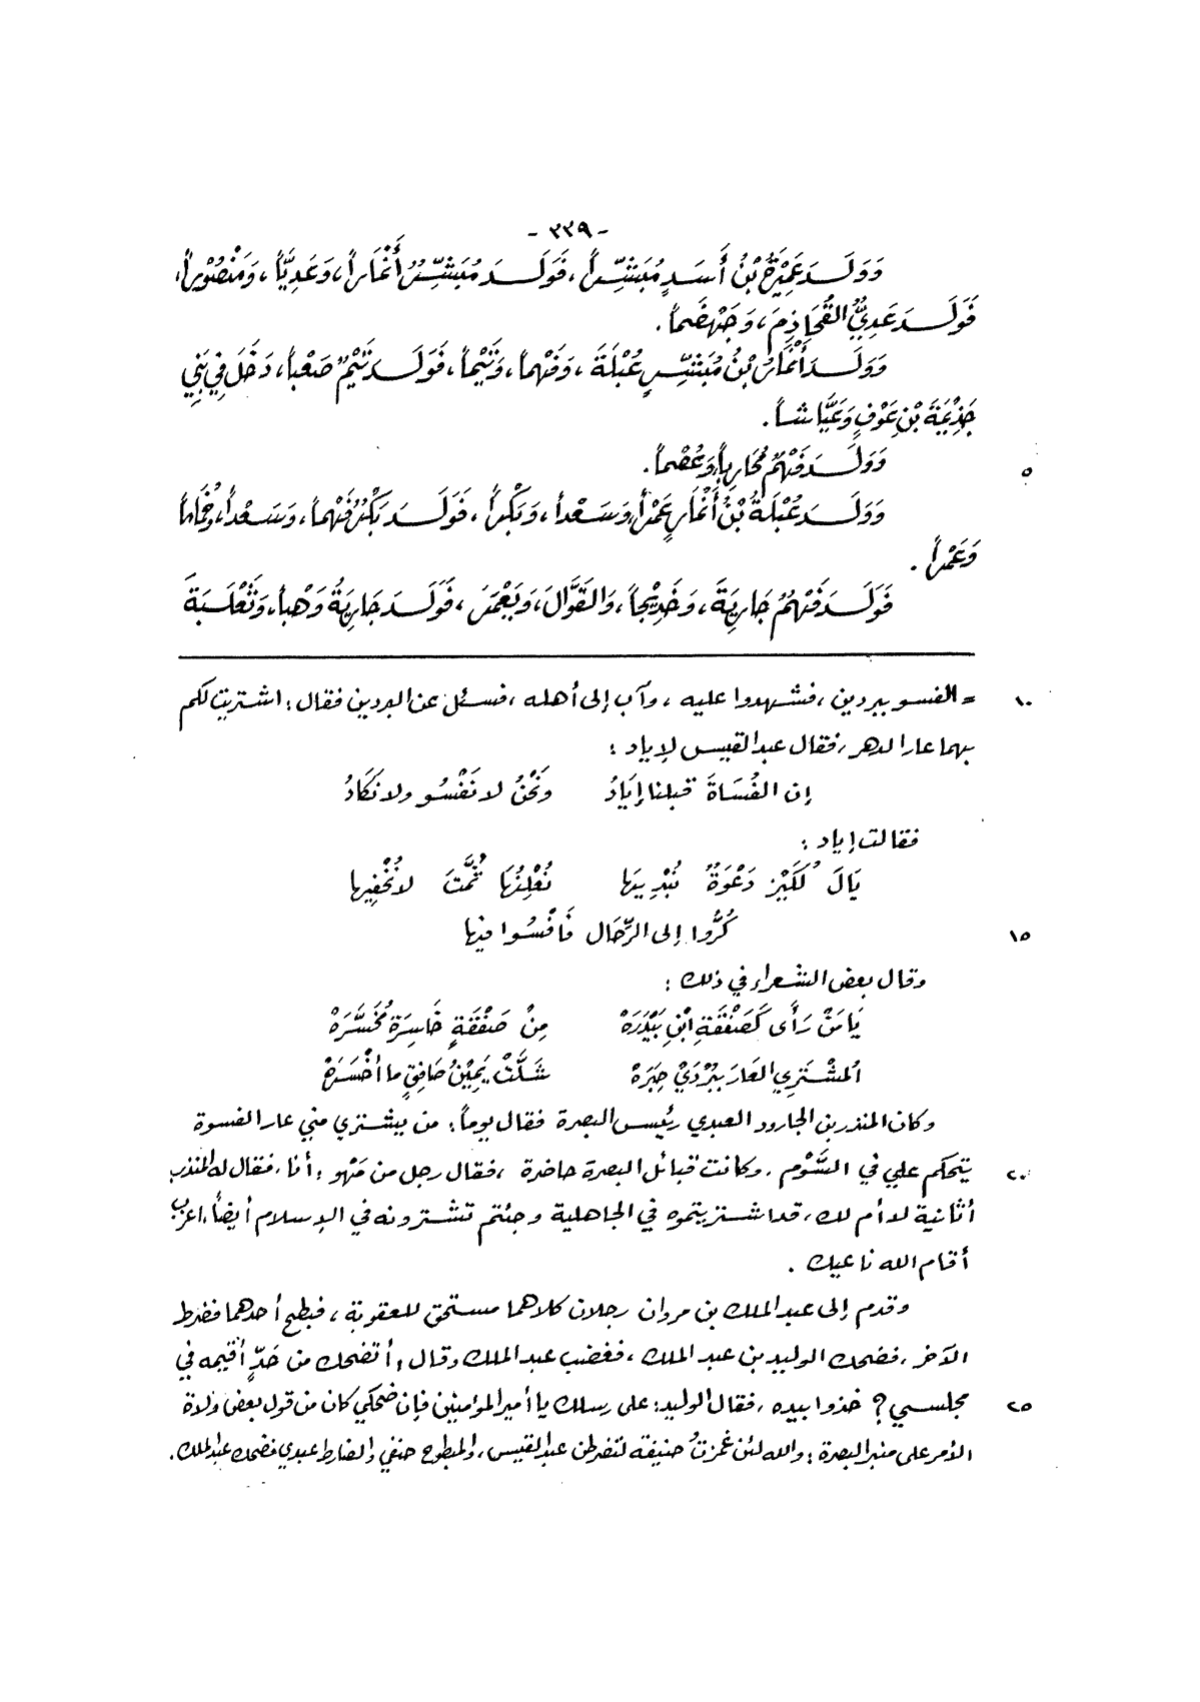 - ٣٣٩ -
وَوَلَدَ عَمِيْرَةُ بْنُ أَسَدٍ مُبَشِّراً، فَوَلَدَ مُبَشِّرٌ أَنْمَاراً، وَعَدِيَّاً، وَمَنْصُوْراً،
فَوَلَدَ عَدِيٌّ القُحَاذِمَ، وَجَهْضَماً.
وَوَلَدَ أَنْمَارُ بْنُ مُبَشِّرٍ عُبْلَةَ، وَفَهْماً، وَتَيْماً، فَوَلَدَ تَيْمٌ صَعْباً، دَخَلَ فِي بَنِي
جَذِيْمَةَ بْنِ عَوْفٍ وَعَيَّاشاً.
وَوَلَدَ فَهْمٌ مُحَارِباً، وَعُصْماً.
٥
وَوَلَدَ عُبْلَةُ بْنُ أَنْمَارٍ عَمْراً، وَسَعْداً، وَبَكْراً، فَوَلَدَ بَكْرٌ فَهْماً، وَسَعْداً، وَخُمَاماً
وَعَمْراً.
فَوَلَدَ فَهْمٌ جَارِيَةَ، وَخَدِيْجاً، وَالقَوَّالَ، وَيَعْمَرَ، فَوَلَدَ جَارِيَةُ وَهْباً، وَثَعْلَبَةَ
١٠
= الفسو ببردين، فشهدوا عليه، وآب إلى أهله، فسئل عن البردين فقال: اشتريت لكم
بهما عار الدهر، فقال عبد القيس لإياد:
إن الفُسَاةَ قبلنا إيَادُ ونَحْنُ لا نَفْسُو ولا نَكَادُ
فقالت إياد:
يَالَ لُكَيْزٍ دَعْوَةً نُبْدِيهَا نُعْلِنُهَا ثُمَّتَ لا نُخْفِيها
كُرُّوا إلى الرِّحَالِ فَافْسُوا فيها
١٥
وقال بعض الشعراء في ذلك:
يَا مَنْ رَأَى كَصَفْقَةِ ابْنِ بَيْدَرَهْ مِنْ صَفْقَةٍ خَاسِرَةٍ مُخَسَّرَهْ
المُشْتَرِي العَارَ بِبُرْدَيْ حِبَرَهْ شَلَّتْ يَمِيْنُ صَافِقٍ ما أَخْسَرَهْ
وكان المنذر بن الجارود العبدي رئيس البصرة فقال يوماً: من يشتري مني عار الفسوة
يتحكم علي في السَّوْم، وكانت قبائل البصرة حاضرة، فقال رجل من مَهْو: أنا، فقال له المنذر:
٢٠
أثانية لا أم لك، قد اشتريتموه في الجاهلية وجئتم تشترونه في الإسلام أيضاً، اعزب
أقام الله ناعيك.
وقدم إلى عبد الملك بن مروان رجلان كلاهما مستحق للعقوبة، فبطح أحدهما فضرط
الآخر، فضحك الوليد بن عبد الملك، فغضب عبد الملك وقال: أتضحك من حَدٍّ أقيمه في
مجلسي؟ خذوا بيده، فقال الوليد: على رسلك يا أمير المؤمنين فإن ضحكي كان من قول بعض ولاة
٢٥
الأمر على منبر البصرة: والله لئن غمزتُ حنيفه لتضرطن عبد القيس، والمبطوح حنفي والضارط عبدي فضحك عبد الملك.